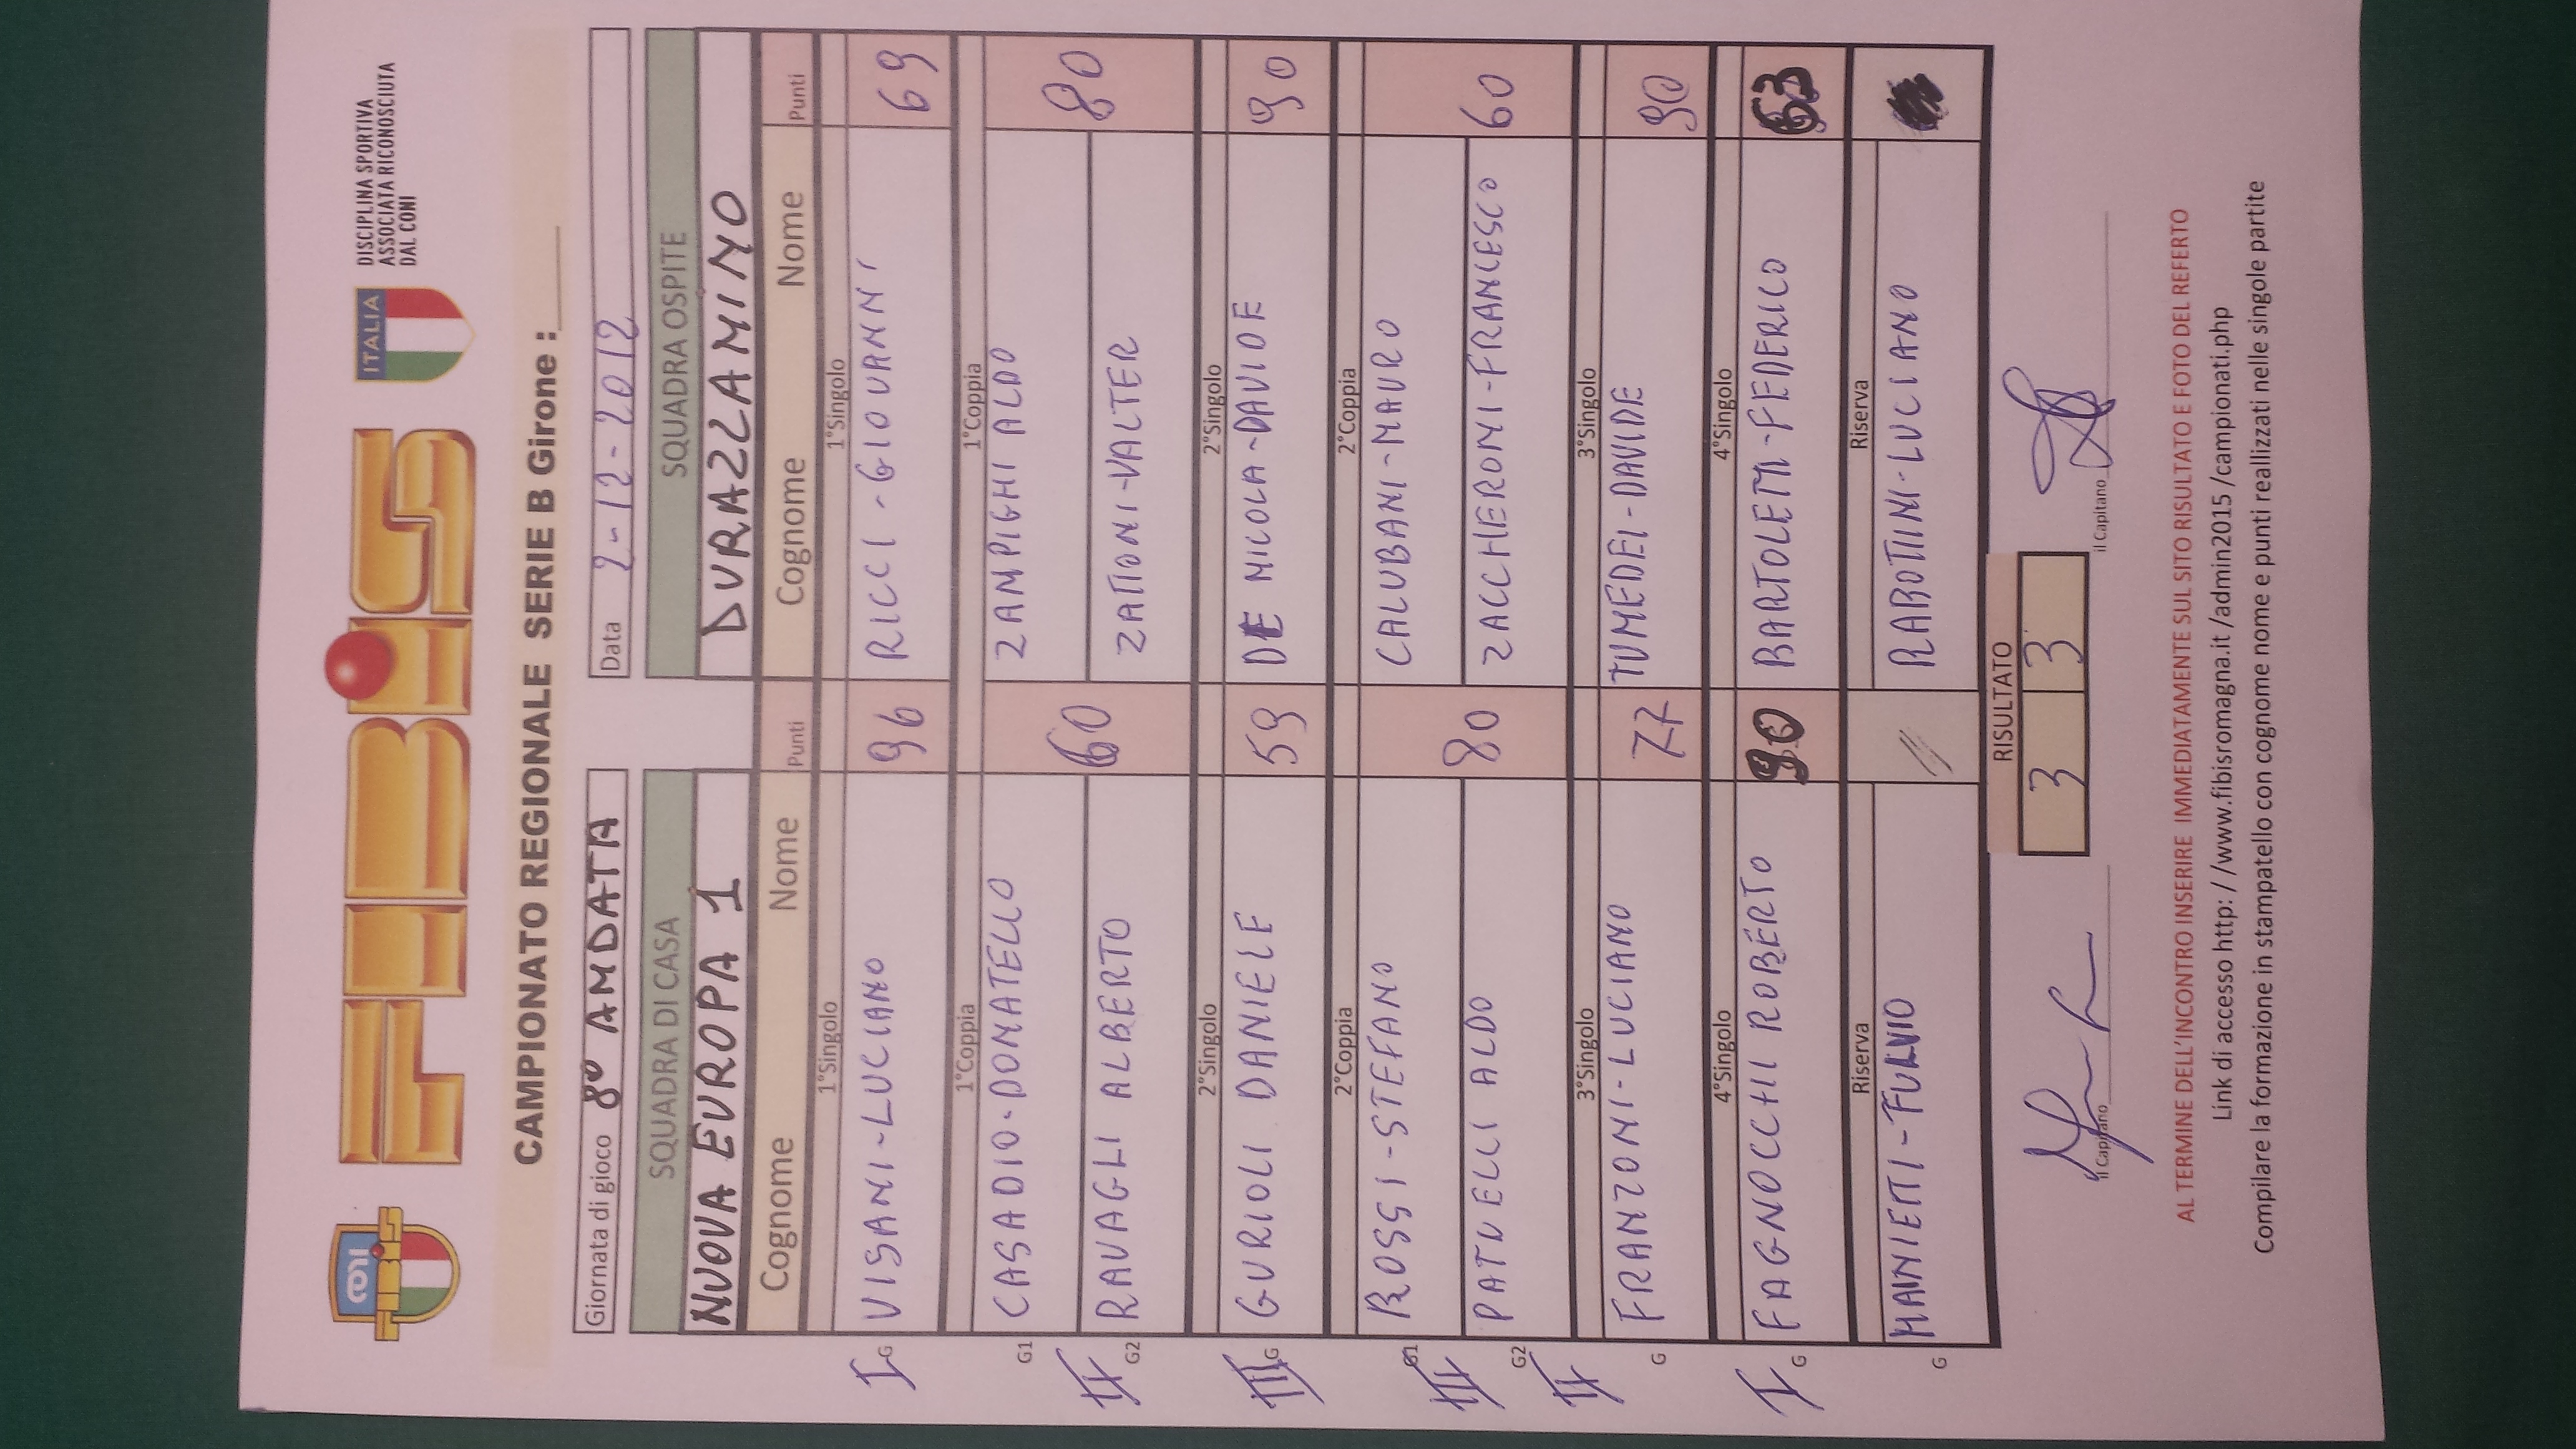 FIBiS
ITALIA
DISCIPLINA SPORTIVA
ASSOCIATA RICONOSCIUTA
DAL CONI
CAMPIONATO REGIONALE SERIE B Girone :
Giornata di gioco 8º ANDATA Data 2-12-2012
SQUADRA DI CASA SQUADRA OSPITE
NUOVA EUROPA 1 DURAZZANINO
Cognome Nome Punti Cognome Nome Punti
1°Singolo 1°Singolo
I G VISANI-LUCIANO 96 RICCI-GIOVANNI 69
1°Coppia 1°Coppia
G1 CASADIO-DONATELLO 60 ZAMPIGHI ALDO 80
II G2 RAVAGLI ALBERTO ZATTONI-VALTER
2°Singolo 2°Singolo
III G GURIOLI DANIELE 59 DE NICOLA-DAVIDE 90
2°Coppia 2°Coppia
G1 ROSSI-STEFANO 80 CALUBANI-MAURO 60
III G2 PATUELLI ALDO ZACCHERONI-FRANCESCO
3°Singolo 3°Singolo
II G FRANZONI-LUCIANO 77 TUMEDEI-DAVIDE 90
4°Singolo 4°Singolo
I G FAGNOCCHI ROBERTO 90 BARTOLETTI-FEDERICO 63
Riserva Riserva
G MANIETTI-FULVIO // RABOTTINI-LUCIANO
RISULTATO
3 3
il Capitano il Capitano
AL TERMINE DELL'INCONTRO INSERIRE IMMEDIATAMENTE SUL SITO RISULTATO E FOTO DEL REFERTO
Link di accesso http: / /www.fibisromagna.it /admin2015 /campionati.php
Compilare la formazione in stampatello con cognome nome e punti reallizzati nelle singole partite